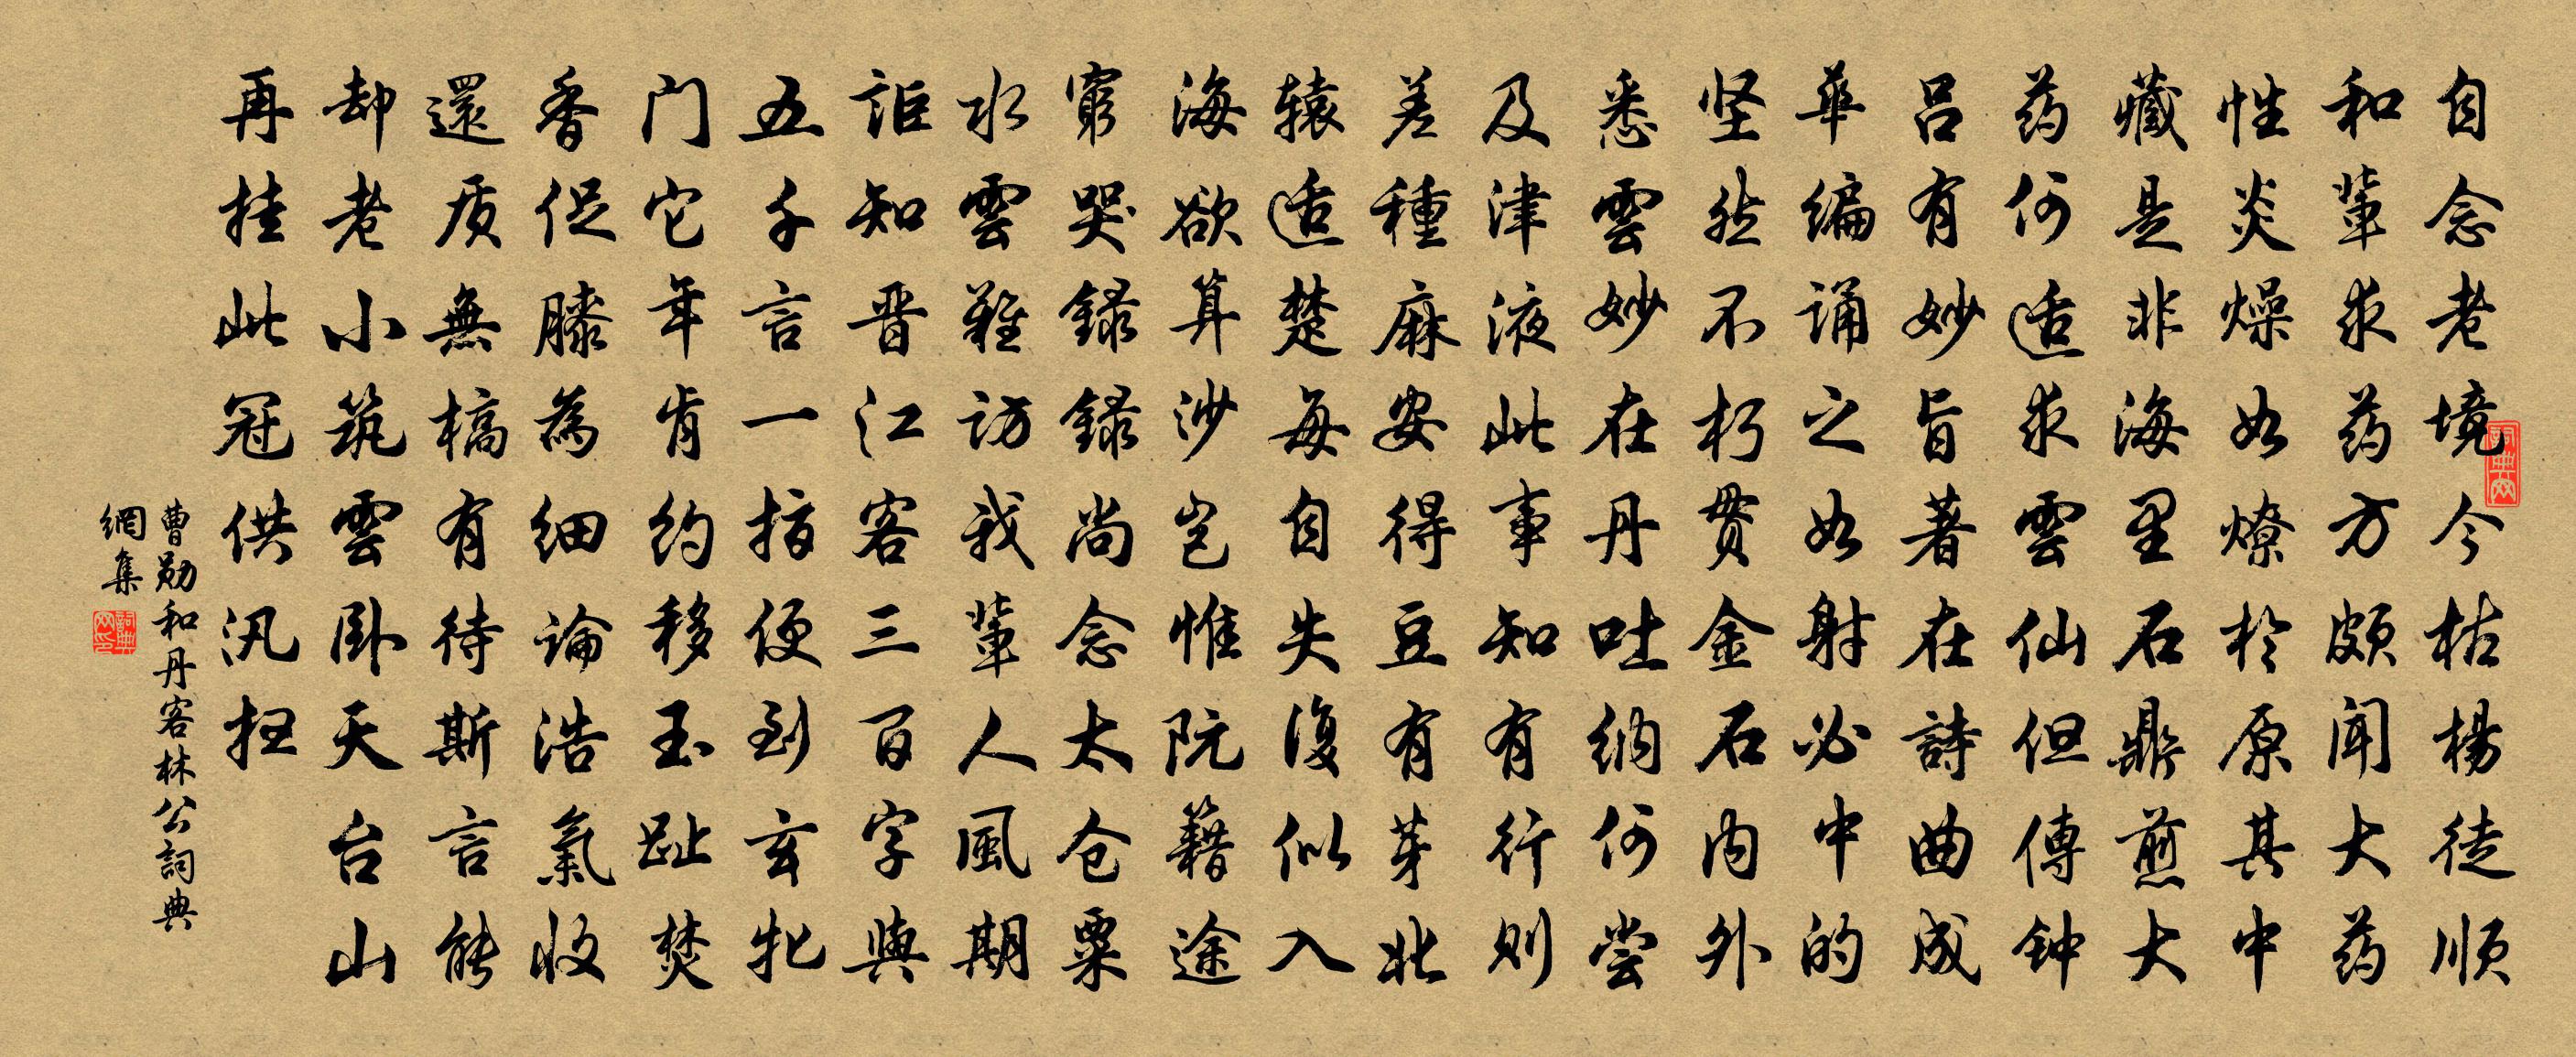 自念老境今枯楊徒順
和輩求药方頗闻大药
性炎燥如燎於原其中
藏是非海里石鼎煎大
药何适求雲仙但傳钟
吕有妙旨著在詩曲成
華编诵之如射必中的
坚然不朽贯金石内外
悉雲妙在丹吐纳何尝
及津液此事知有行则
差種麻安得豆有芽北
辕适楚每自失復似入
海欲算沙岂惟阮籍途
窮哭録録尚念太仓粟
水雲難访我輩人風期
詎知晋江客三百字與
五千言一指便到玄牝
门它年肯约移玉趾焚
香促膝為细論浩氣收
還质無槁有待斯言能
却老小筑雲卧天台山
再挂此冠供汛扫
曹勋和丹客林公詞典
網集
詞典网
詞典网印